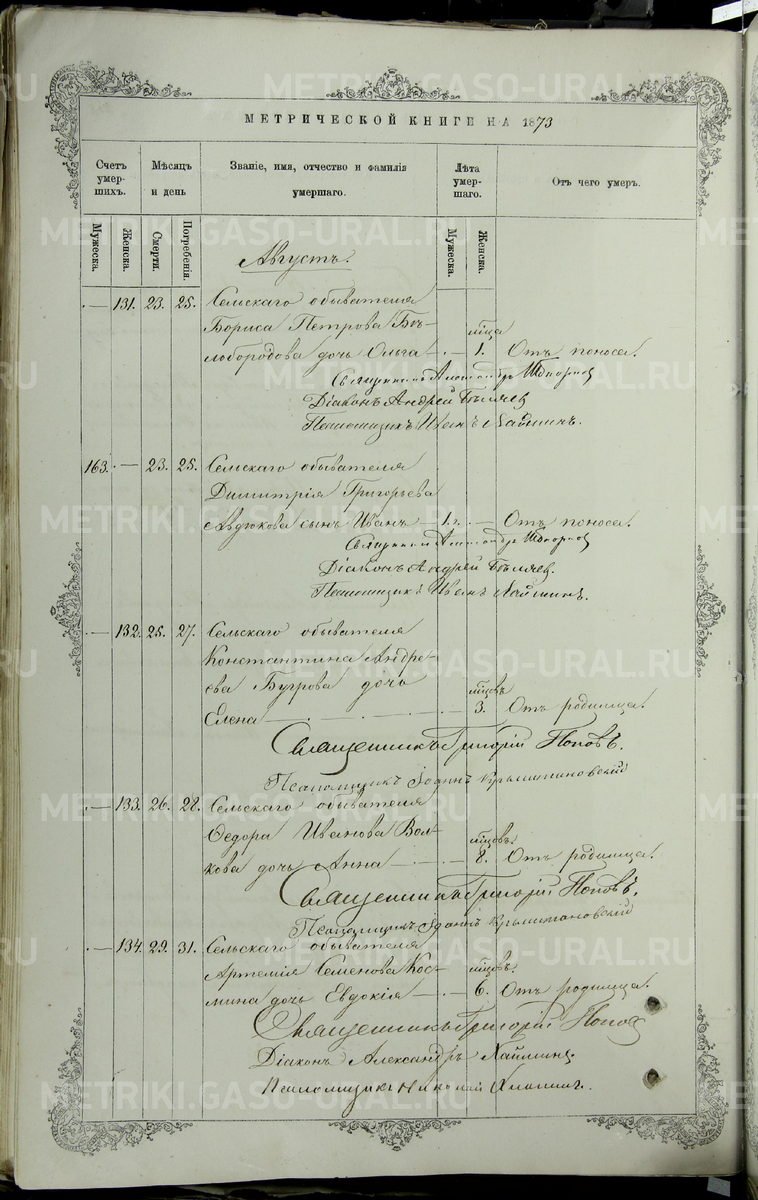 МЕТРИЧЕСКОЙ КНИГЕ НА 1873
Счетъ умер-шихъ.
Мѣсяцъ и день
Званіе, имя, отчество и фамилія умершаго.
Лѣта умер-шаго.
Отъ чего умеръ.
Мужеска. Женска. Смерти. Погребенія. Мужеска. Женска.
Августъ.
131. 23. 25. Сельскаго обывателя
Бориса Петрова Бѣ-
мѣсяца
лобородова дочь Ольга 1. Отъ поноса.
Священникъ Александръ
Діаконъ Андрей Бѣляев
Псаломщикъ Иванъ Хаймин.
163. 23. 25. Сельскаго обывателя
Димитрія Григорьева
Авдюкова сынъ Иванъ 1.г. Отъ поноса.
Священникъ Александръ
Діаконъ Андрей Бѣляев.
Псаломщикъ Иванъ Хаймин.
132. 25. 27. Сельскаго обывателя
Константина Андре-
ева Бугрова дочь
мѣсяцовъ
Елена 3. Отъ родимца.
Священникъ Григорій Поповъ.
Псаломщикъ Іоаннъ
133. 26. 28. Сельскаго обывателя
Ѳедора Иванова Вол-
мѣсяцовъ.
кова дочь Анна 8. Отъ родимца.
Священникъ Григорій Поповъ.
Псаломщикъ Іоаннъ
134. 29. 31. Сельскаго обывателя
Артемія Семенова Кос-
мѣсяцовъ.
мина дочь Евдокія 6. Отъ родимца.
Священникъ Григорій Попов
Діаконъ Александръ Хаймин.
Псаломщикъ Николай
METRIKI.GASO-URAL.RU